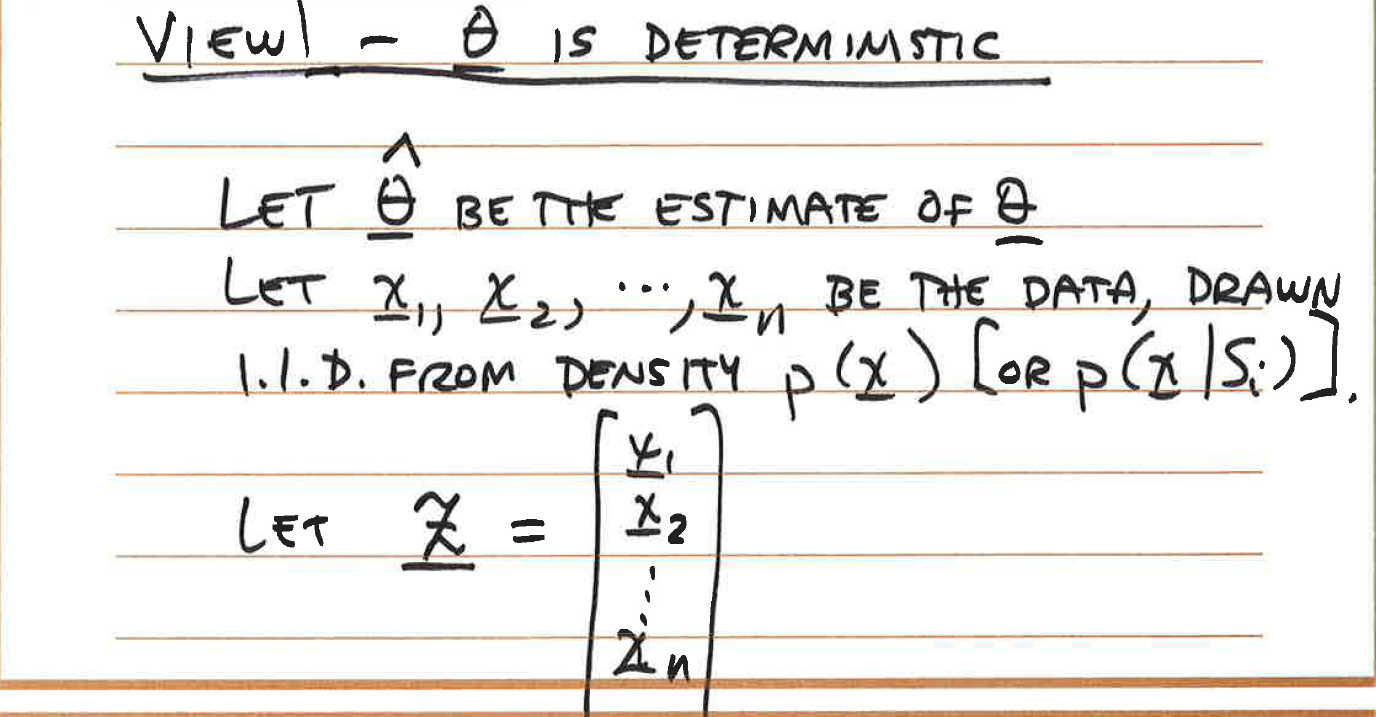 VIEW 1 - θ IS DETERMINISTIC
LET θ̂ BE THE ESTIMATE OF θ
LET x₁, x₂, ..., xₙ BE THE DATA, DRAWN
I.I.D. FROM DENSITY p(x) [OR p(x|Sᵢ)].
LET z = [x₁
x₂
⋮
xₙ]